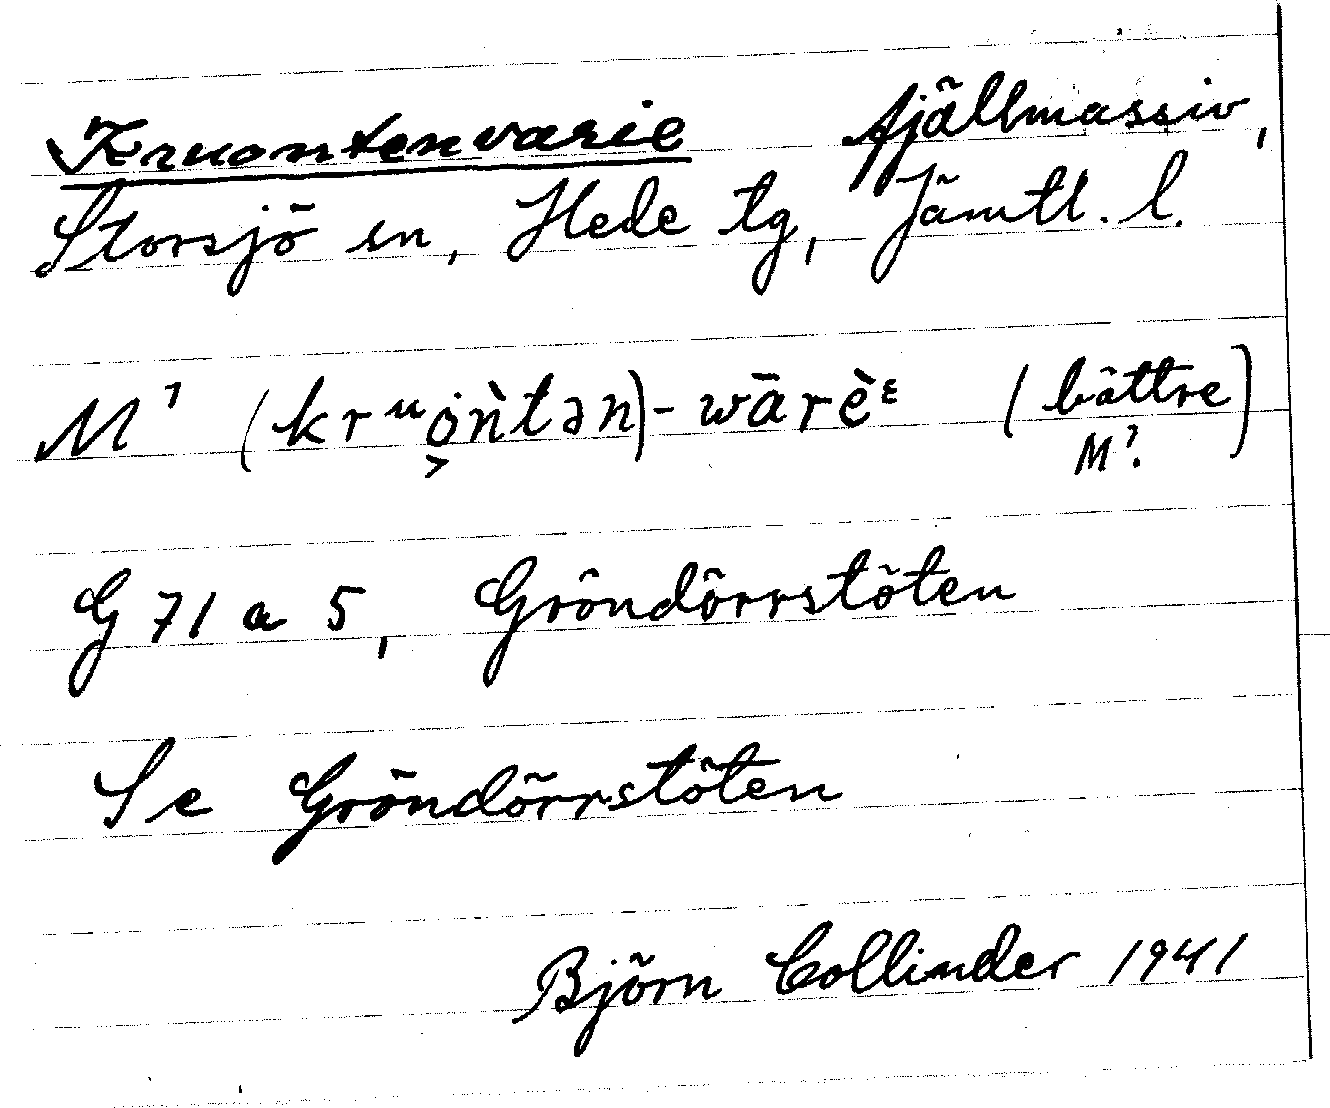 Kruontenvarie fjällmassiv,
Storsjö sn, Hede tg, Jämtl. l.
M⁷ (krᵘo̭ǹtən)-wārèᵋ (bättre M⁷.)
G 71 a 5, Gröndörrstöten
Se Gröndörrstöten
Björn Collinder 1941